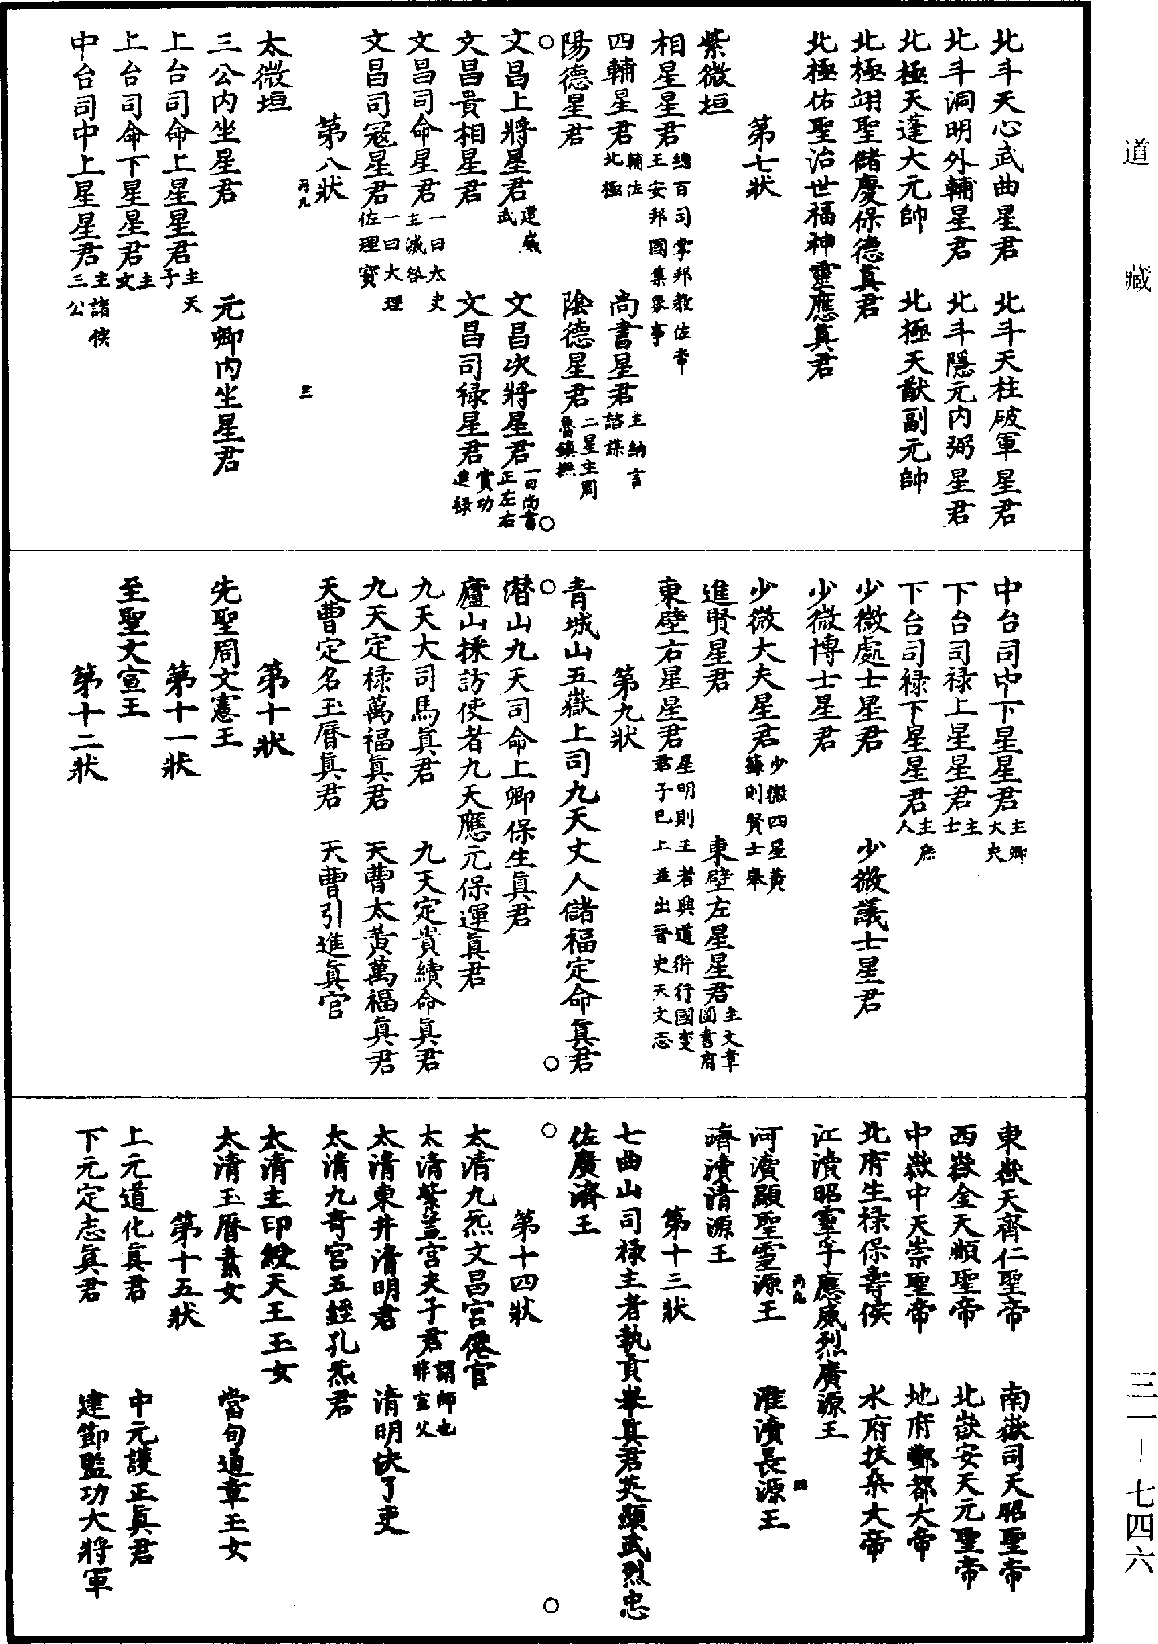 道藏
北斗天心武曲星君　北斗天柱破軍星君
北斗洞明外輔星君　北斗隱元內弼星君
北極天蓬大元帥　北極天猷副元帥
北極翊聖儲慶保德真君
北極佑聖治世福神靈應真君
第七狀
紫微垣
相星星君總百司掌邦教佐帝王安邦國集眾事
四輔星君輔佐北極　尚書星君主納言諮謀
陽德星君　陰德星君二星主周魯鎮撫
文昌上將星君建威武　文昌次將星君一曰尚書正左右
文昌貴相星君　文昌司祿星君賞功進祿
文昌司命星君一曰太史主滅咎
文昌司寇星君一曰大理佐理寶
第八狀
太微垣
三公內坐星君　元卿內坐星君
上台司命上星星君主天子
上台司命下星星君主文
中台司中上星星君主諸侯三公
中台司中下星星君主卿大夫
下台司祿上星星君主士
下台司祿下星星君主庶人
少微處士星君　少微議士星君
少微博士星君
少微大夫星君少微四星黃蘇則賢士舉
進賢星君　東壁左星星君主文章圖書府
東壁右星星君星明則王者興道術行國變君子已上並出晉史天文志
第九狀
青城山五嶽上司九天丈人儲福定命真君
潛山九天司命上卿保生真君
廬山採訪使者九天應元保運真君
九天大司馬真君　九天定貴續命真君
九天定祿萬福真君　天曹太黃萬福真君
天曹定名玉曆真君　天曹引進真官
第十狀
先聖周文憲王
第十一狀
至聖文宣王
第十二狀
東嶽天齊仁聖帝　南嶽司天昭聖帝
西嶽金天順聖帝　北嶽安天元聖帝
中嶽中天崇聖帝　地府酆都大帝
北府生祿保壽侯　水府扶桑大帝
江瀆昭靈孚應威烈廣源王
河瀆顯聖靈源王　淮瀆長源王
濟瀆清源王
第十三狀
七曲山司祿主者執貢舉真君英顯武烈忠
佐廣濟王
第十四狀
太清九炁文昌宮僊官
太清紫蓋宮夫子君謂師也非宣父
太清東井清明君　清明快了吏
太清九奇宮五經孔炁君
太清主印綬天王玉女
太清玉曆素女　當旬通章玉女
第十五狀
上元道化真君　中元護正真君
下元定志真君　建節監功大將軍
三一－七四六